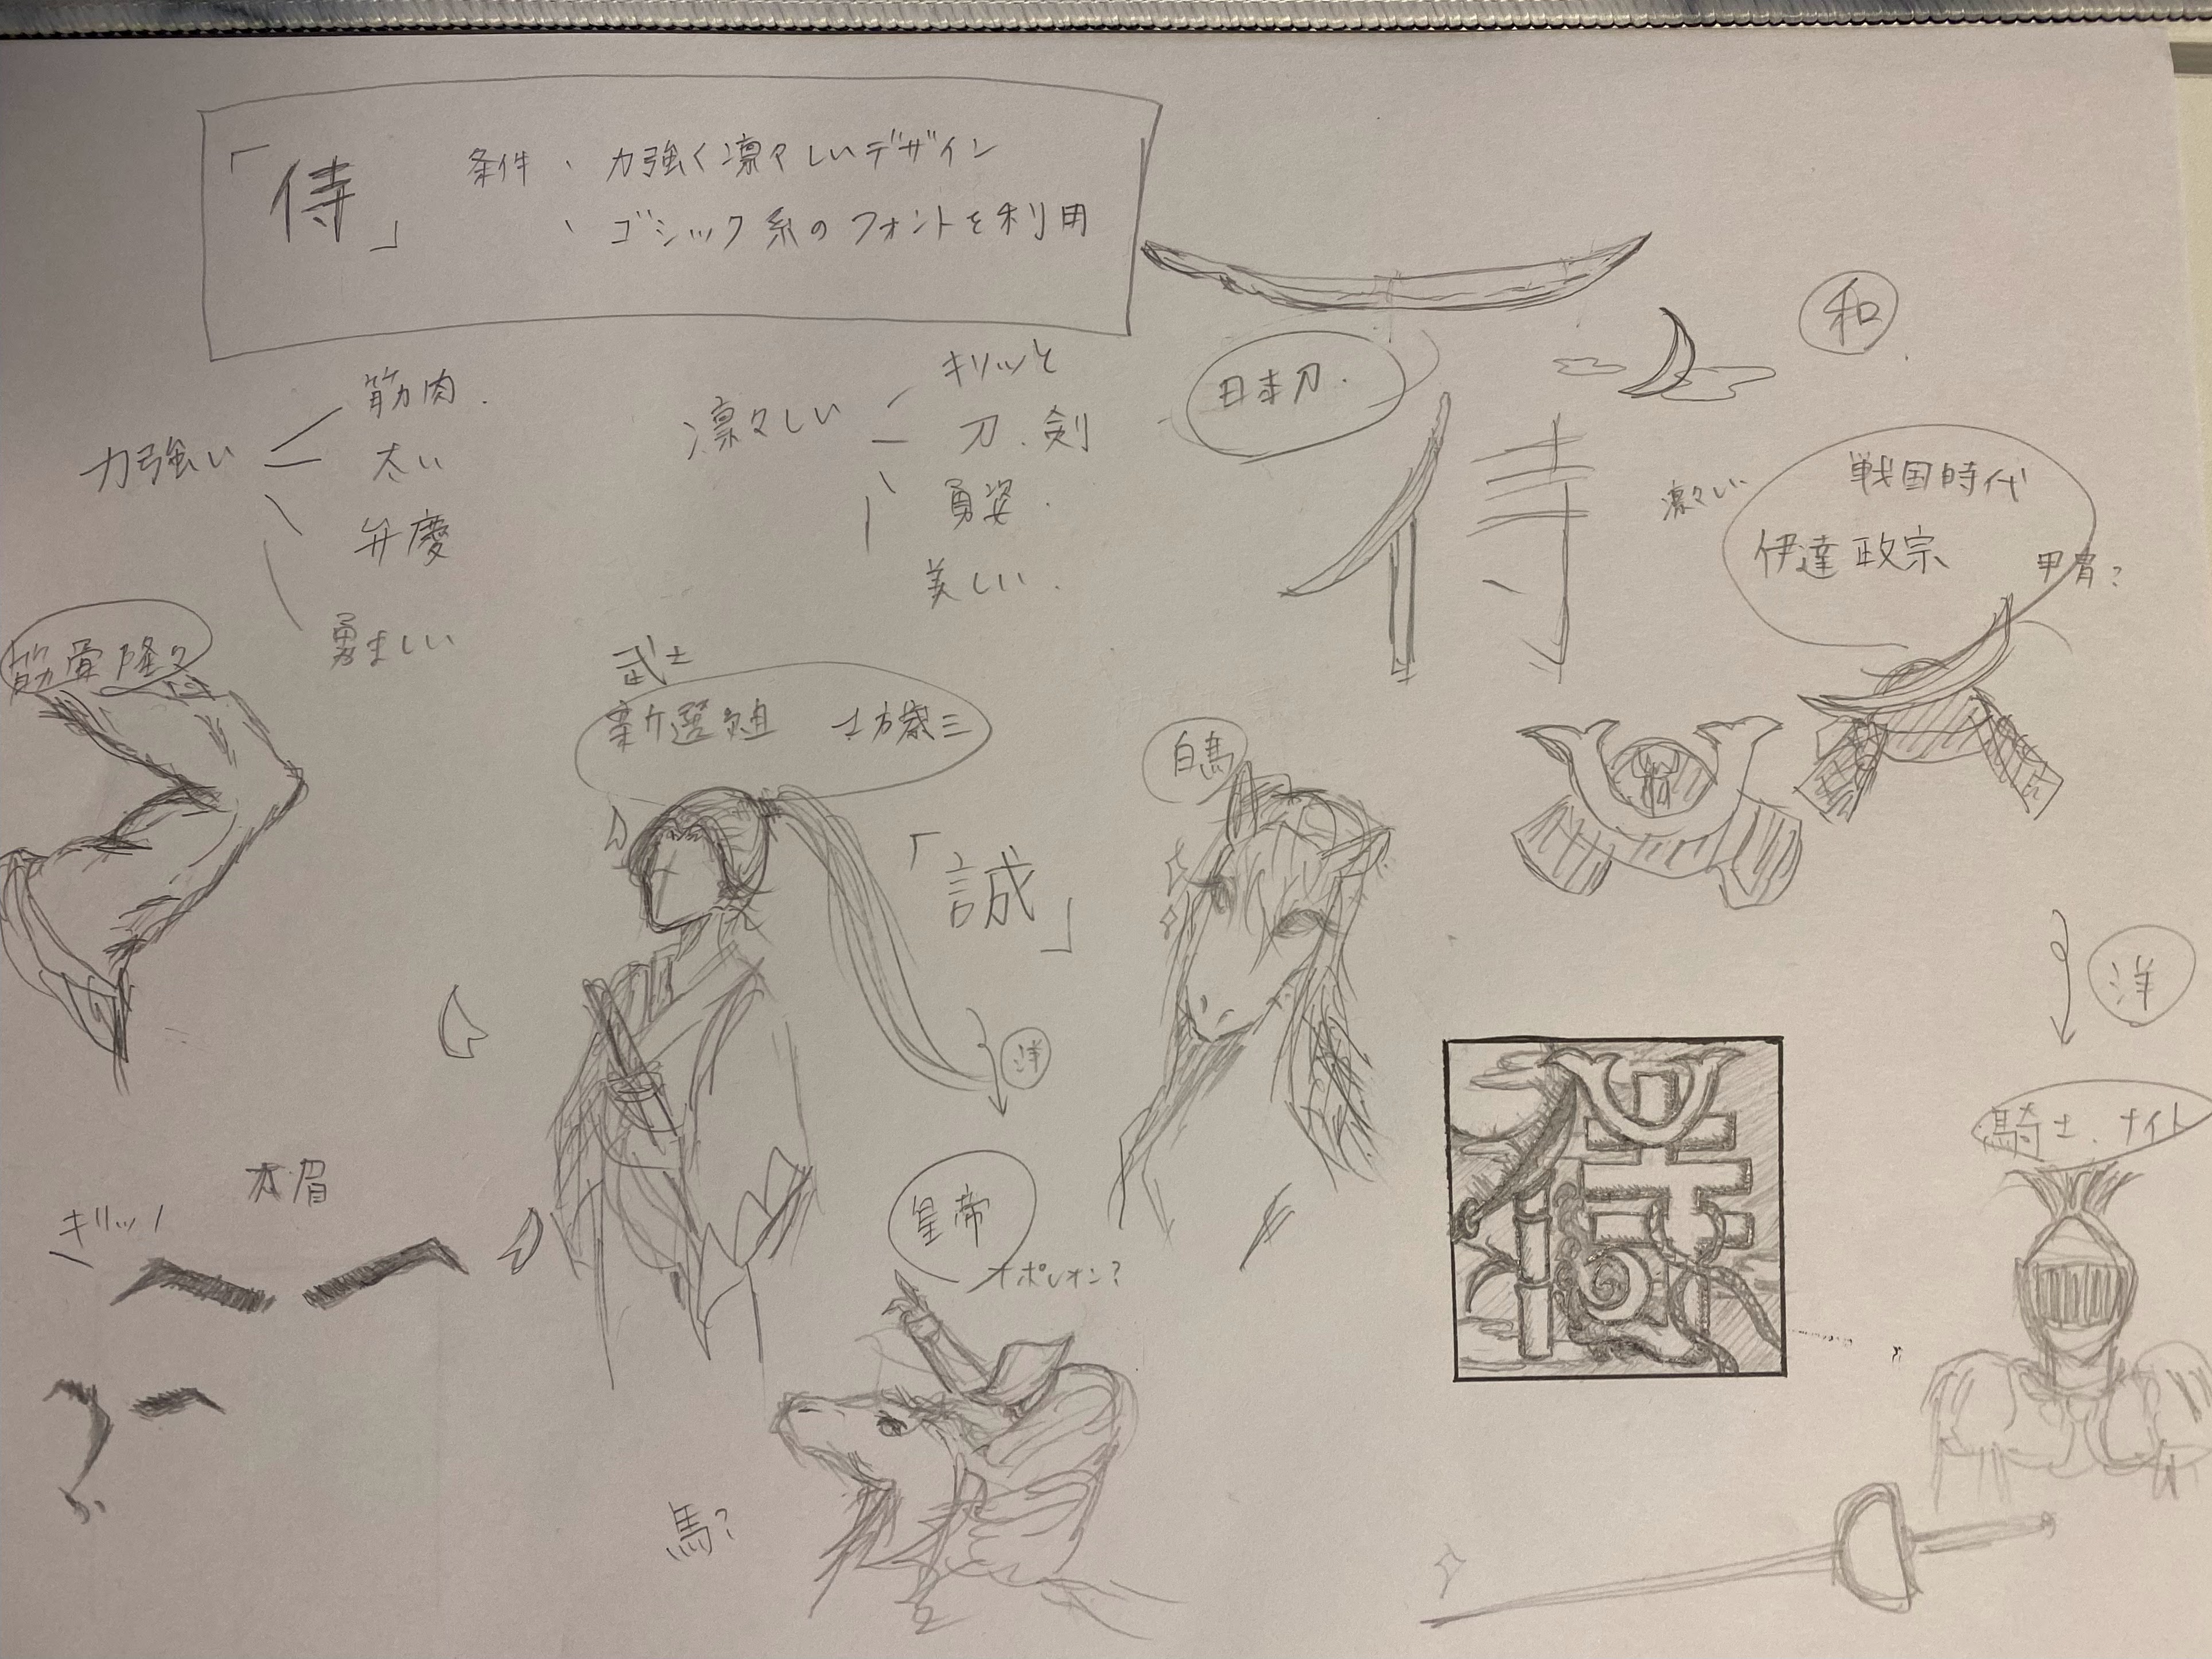 「侍」 条件、力強く凛々しいデザイン
、ゴシック系のフォントを利用
力強い
筋肉.
太い
弁慶
勇ましい
凛々しい
キリッと
刀.剣
勇姿.
美しい.
日本刀.
和
侍
凛々しい
戦国時代
伊達政宗
甲冑?
筋骨隆々
武士
新選組 土方歳三
「誠」
白馬
洋
洋
侍
騎士.ナイト
皇帝
ナポレオン?
太眉
キリッ
馬?